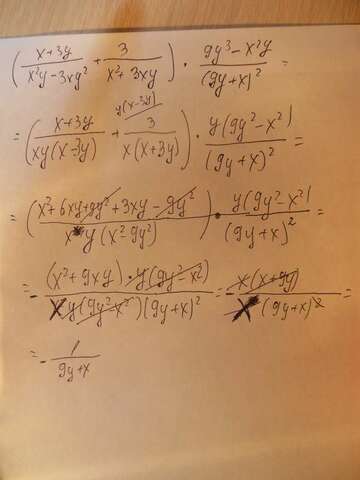 (x+3y / x²y-3xy² + 3 / x²+3xy) · 9y³-x²y / (9y+x)² =
= (x+3y / xy(x-3y) + y(x-3y) 3 / x(x+3y)) · y(9y²-x²) / (9y+x)² =
= (x²+6xy+9y²+3xy-9y² / xy(x²-9y²)) · y(9y²-x²) / (9y+x)² =
= - (x²+9xy)·y(9y²-x²) / xy(9y²-x²)(9y+x)² = - x(x+9y) / x(9y+x)² =
= - 1 / 9y+x